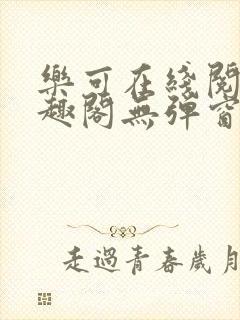 樂可在綫閱
趣閣無彈窗
走過青春歲月